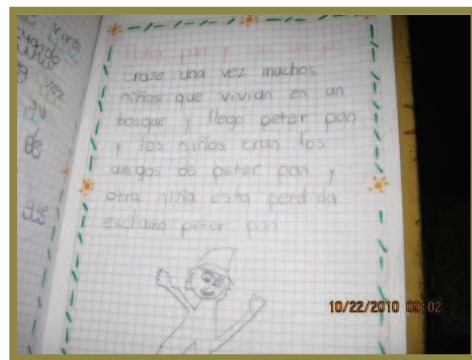 Peter pan y sus amigos
Erase una vez muchos
niños que vivian en an
bosque y llego peter pan
y los niños eran los
amigos de peter pan y
otra niña esta perdida
exclamo peter pan
10/22/2010 09:02